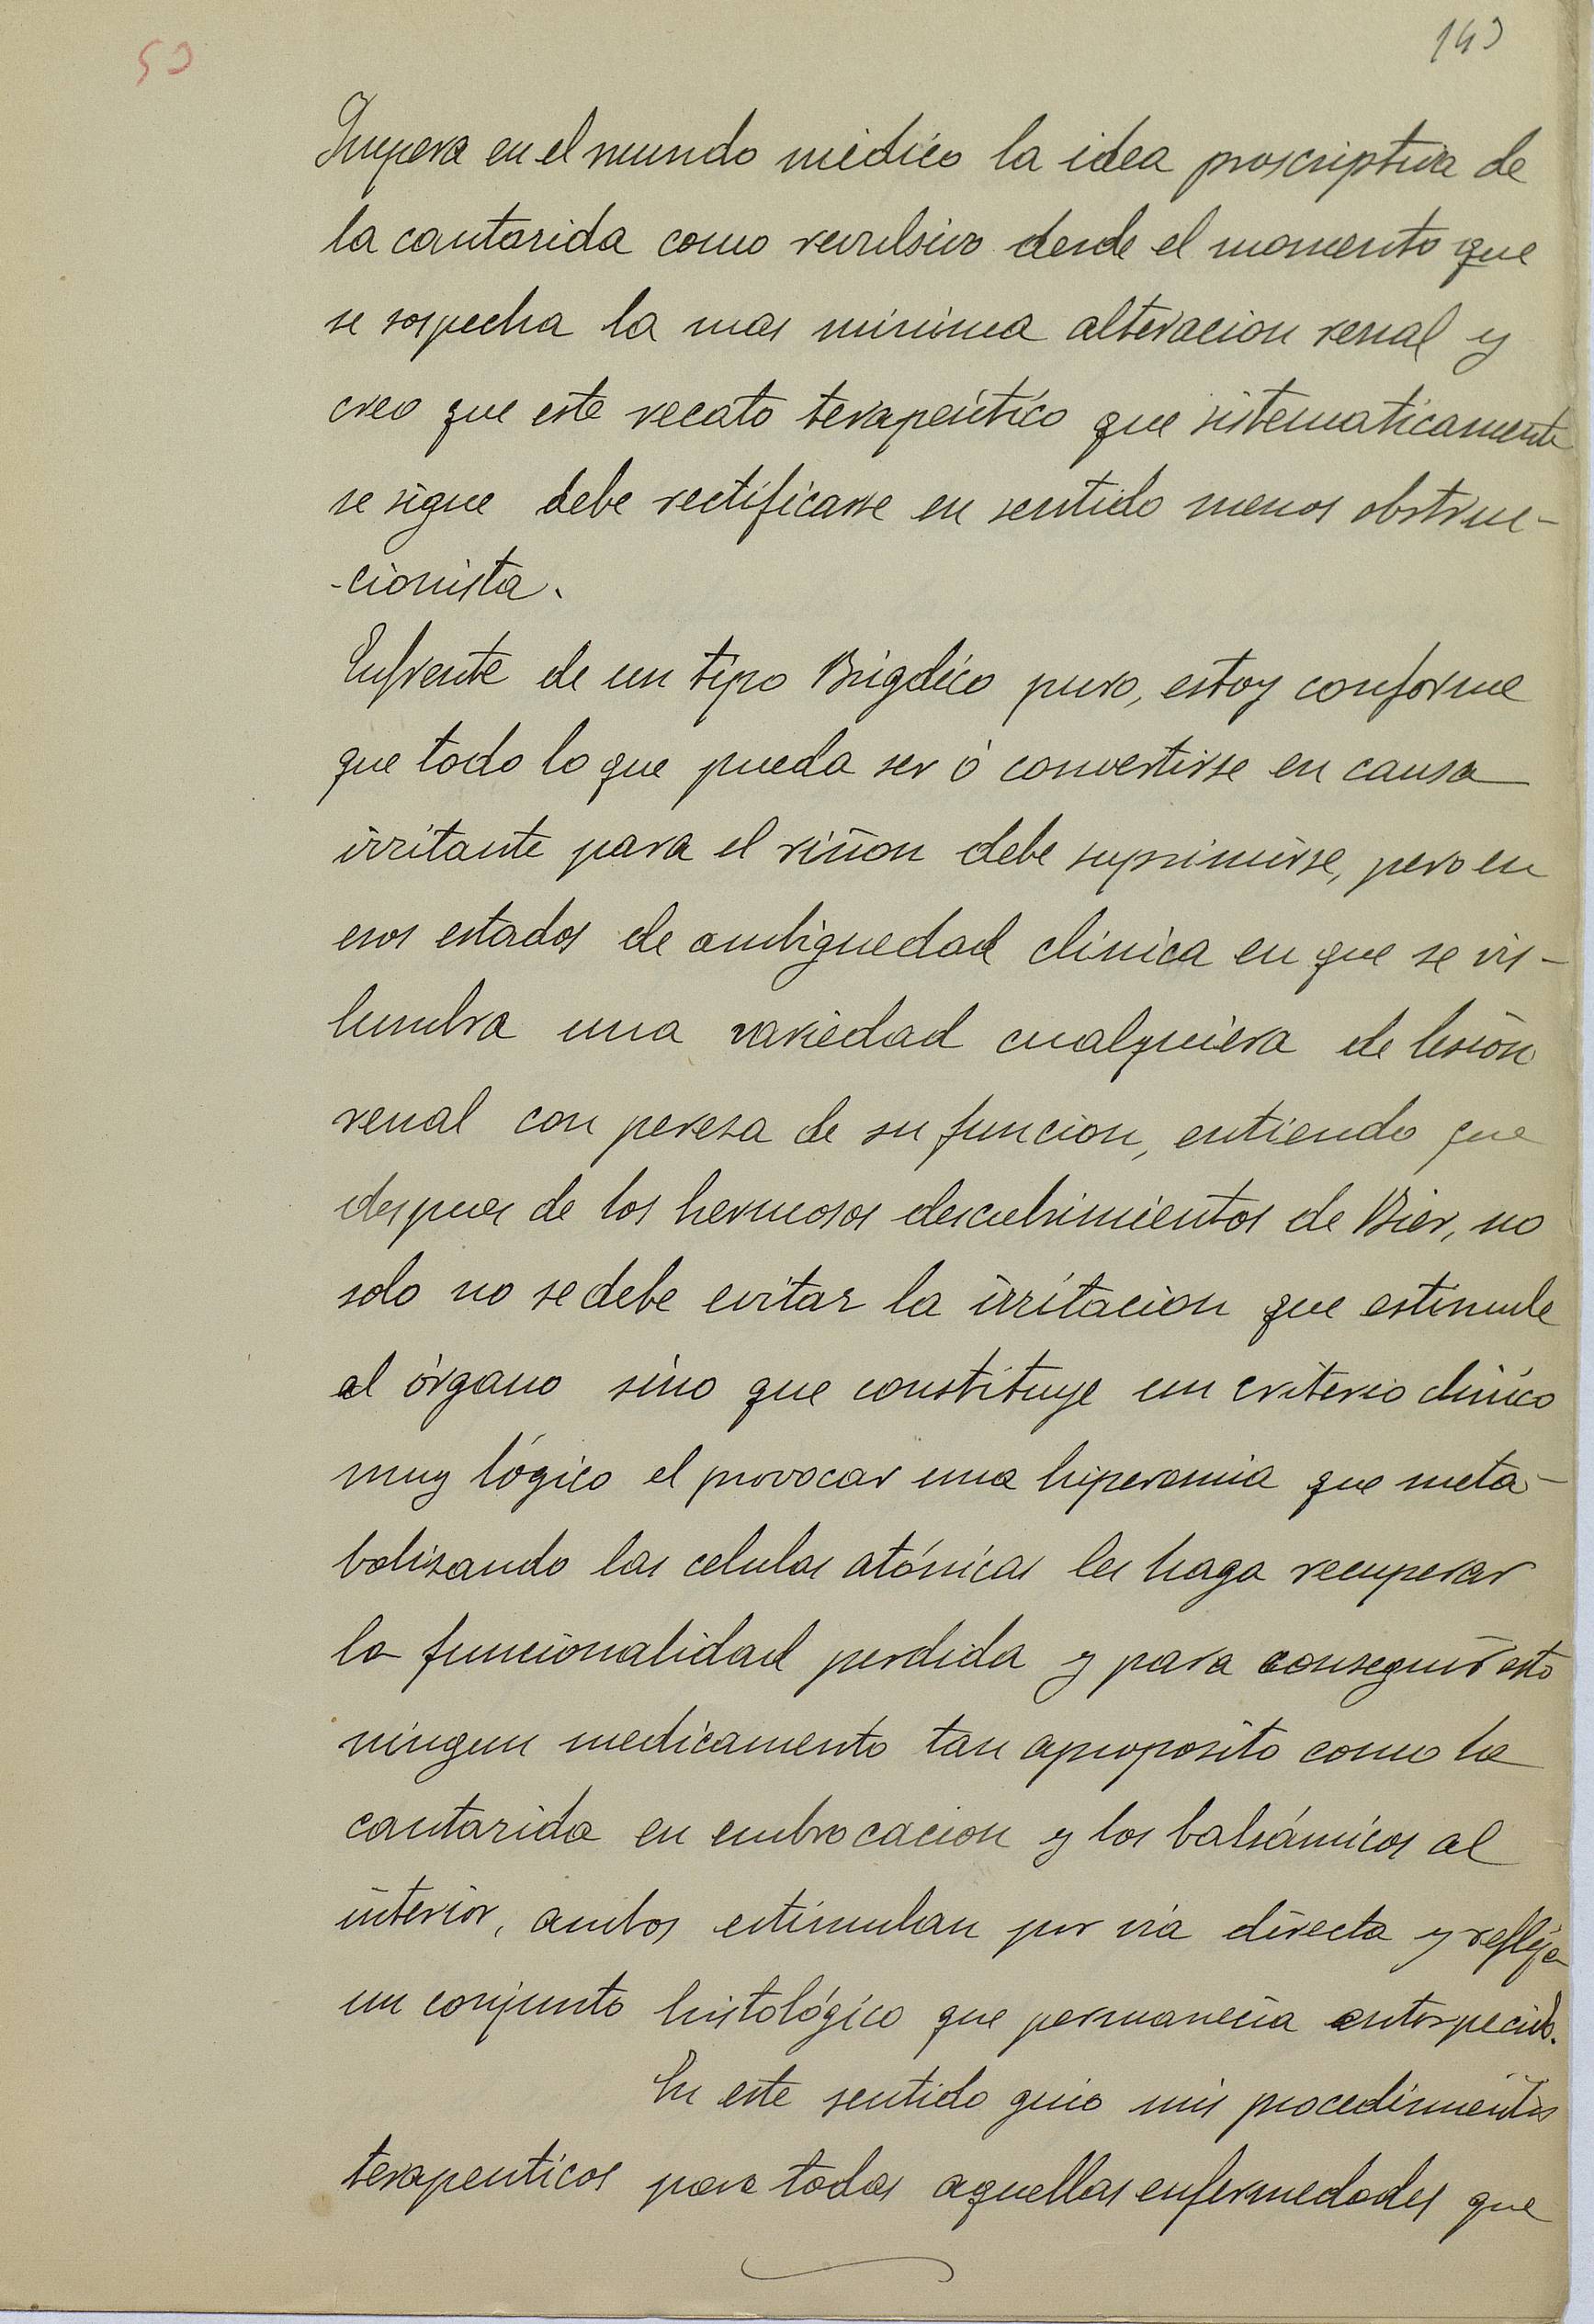 Impera en el mundo médico la idea proscriptiva de
la cantarida como revulsivo desde el momento que
se sospecha la mas minima alteracion renal y
creo que este recato terapéutico que sistematicamente
se sigue debe rectificarse en sentido menos obstruc-
-cionista.
Enfrente de un tipo Brigdico puro, estoy conforme
que todo lo que pueda ser ó convertirse en causa
irritante para el riñon debe suprimirse, pero en
esos estados de ambiguedad clinica en que se vis-
lumbra una variedad cualquiera de lesion
renal con pereza de su funcion, entiendo que
despues de los hermosos descubrimientos de Bier, no
solo no se debe evitar la irritacion que estimule
al órgano sino que constituye un criterio clinico
muy lógico el provocar una hiperemia que meta-
bolizando las celulas atónicas les haga recuperar
la funcionalidad perdida y para conseguir esto
ningun medicamento tan aproposito como la
cantarida en embrocacion y los balsámicos al
interior, ambos estimulan por via directa y refleja
un conjunto histológico que permanecia entorpecido.
En este sentido guio mis procedimientos
terapeuticos para todas aquellas enfermedades que